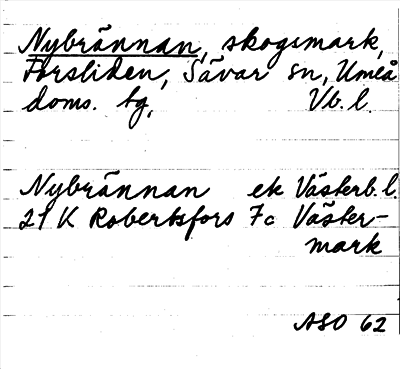 Nybrännan, skogsmark,
Forsliden, Sävar sn, Umeå
doms. tg, Vb. l.
Nybrännan ek Västerb. l.
21 K Robertsfors 7c Väster-
mark
ASO 62